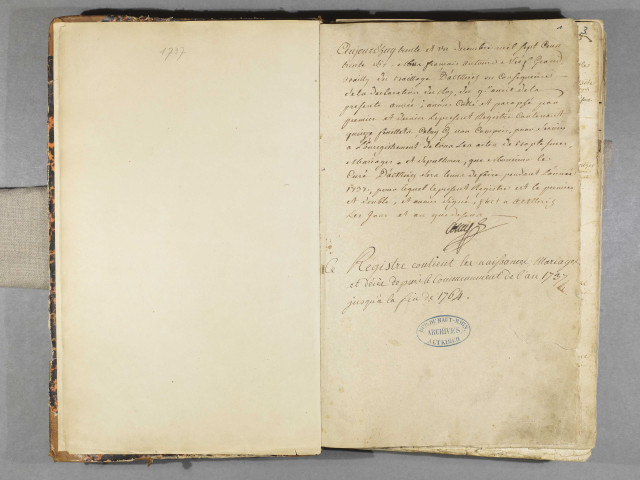 1737
1
Cejourd'huy trente et un decembre mil sept Cent
trente six, françois Antoine Grand
Bailly du Bailliage en Consequence
de la declaration du Roy, du avril de la
presente année, avons Cotté et paraphé par
premier et dernier le present Registre Contenant
quinze feuillets, Celuy cy non Compris, pour servir
a l'Enregistrement de tous les actes de Baptesmes,
Mariages, et sepultures, que Monsieur le
Curé sera tenu de faire pendant l'année
1737, pour lequel le present Registre est le premier
et double, et avons signé, fait a
Les Jour et an que dessus
Ce Registre contient les naissances Mariages
et décès depuis le Commencement de l'an 1737
jusqu'à la fin de 1764.
DEP. DU HAUT-RHIN
ARCHIVES
ALTKIRCH